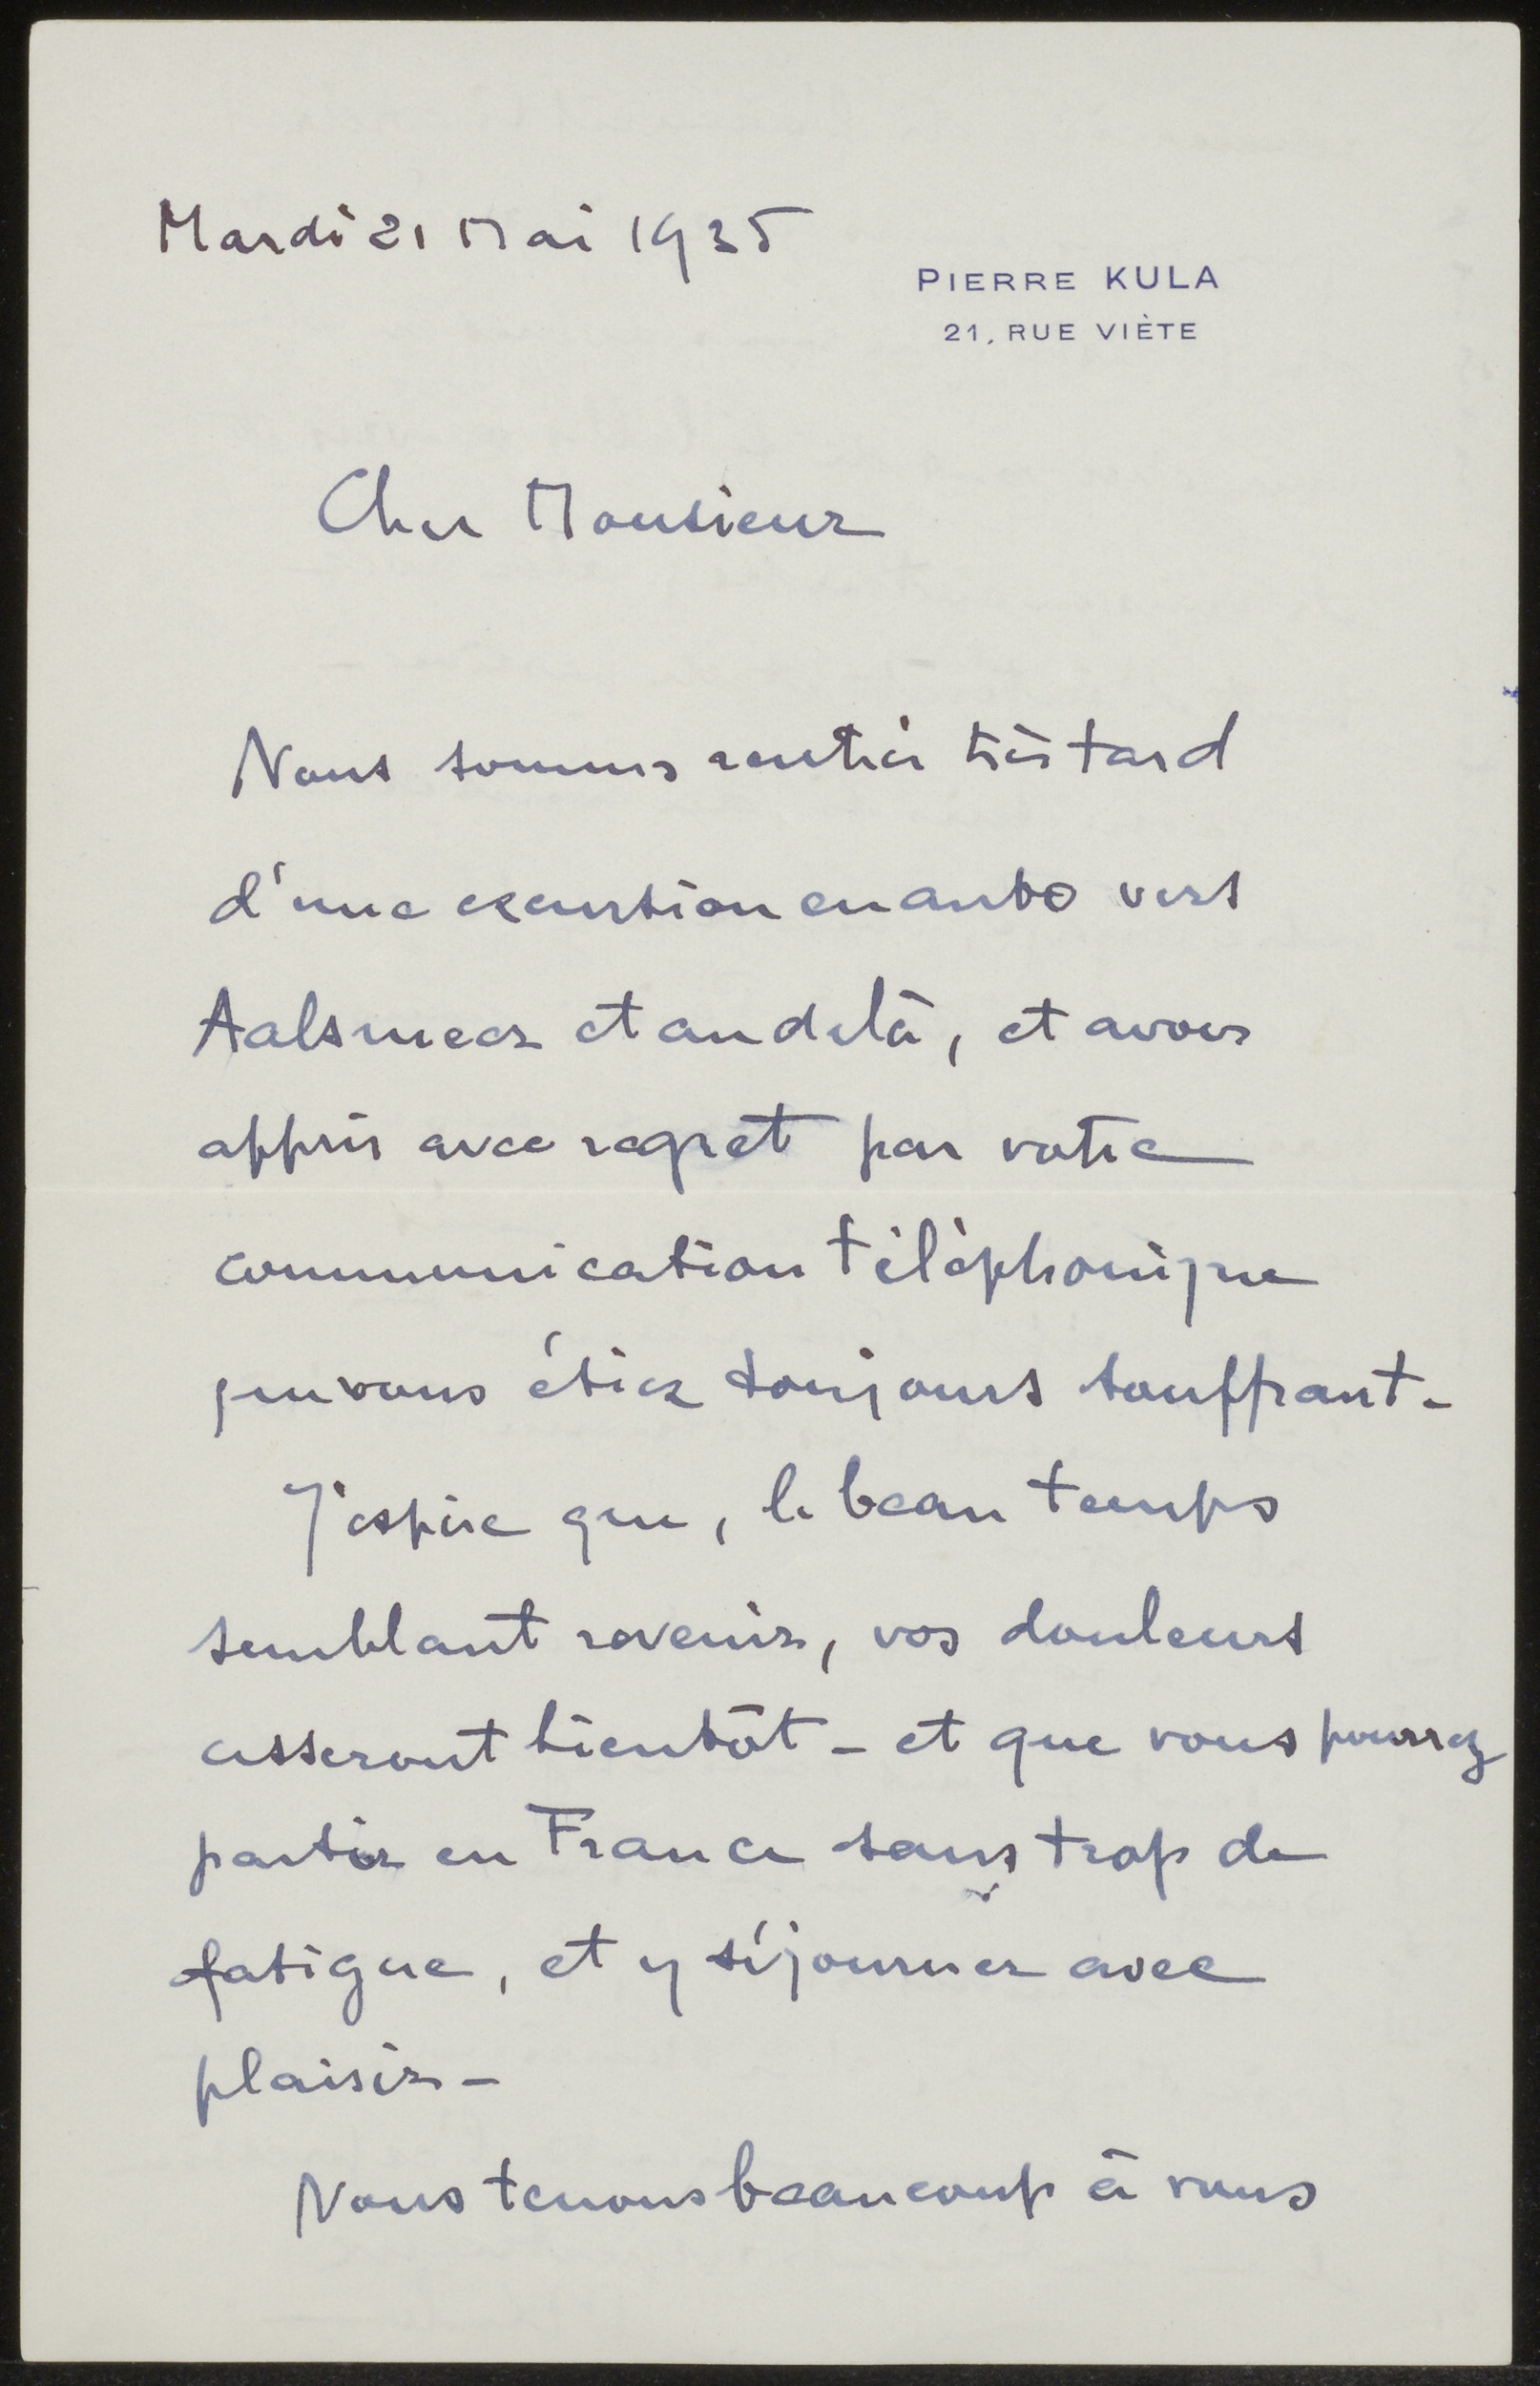 Mardi 21 Mai 1935
PIERRE KULA
21, RUE VIÈTE
Cher Monsieur
Nous sommes rentrés très tard
d'une excursion en auto vers
Aalsmeer et au delà, et avons
appris avec regret par votre
communication téléphonique
que vous étiez toujours souffrant -
J'espère que, le beau temps
semblant revenir, vos douleurs
cesseront bientôt - et que vous pourrez
partir en France sans trop de
fatigue, et y séjourner avec
plaisir -
Nous tenons beaucoup à vous